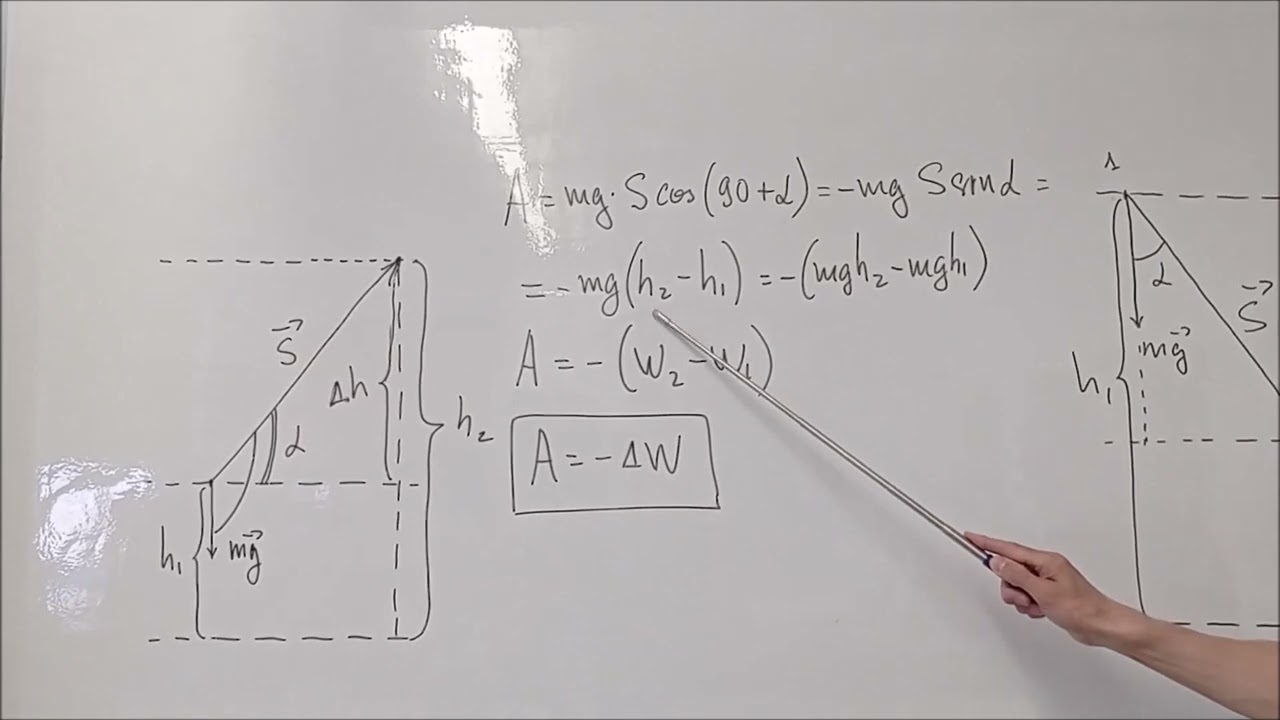 A = mg · S cos(90+α) = -mg S sin α =
= - mg(h₂ - h₁) = -(mgh₂ - mgh₁)
A = - (W₂ - W₁)
A = - ΔW
S⃗
Δh
α
h₂
h₁
mg⃗
1
α
S⃗
mg⃗
h₁